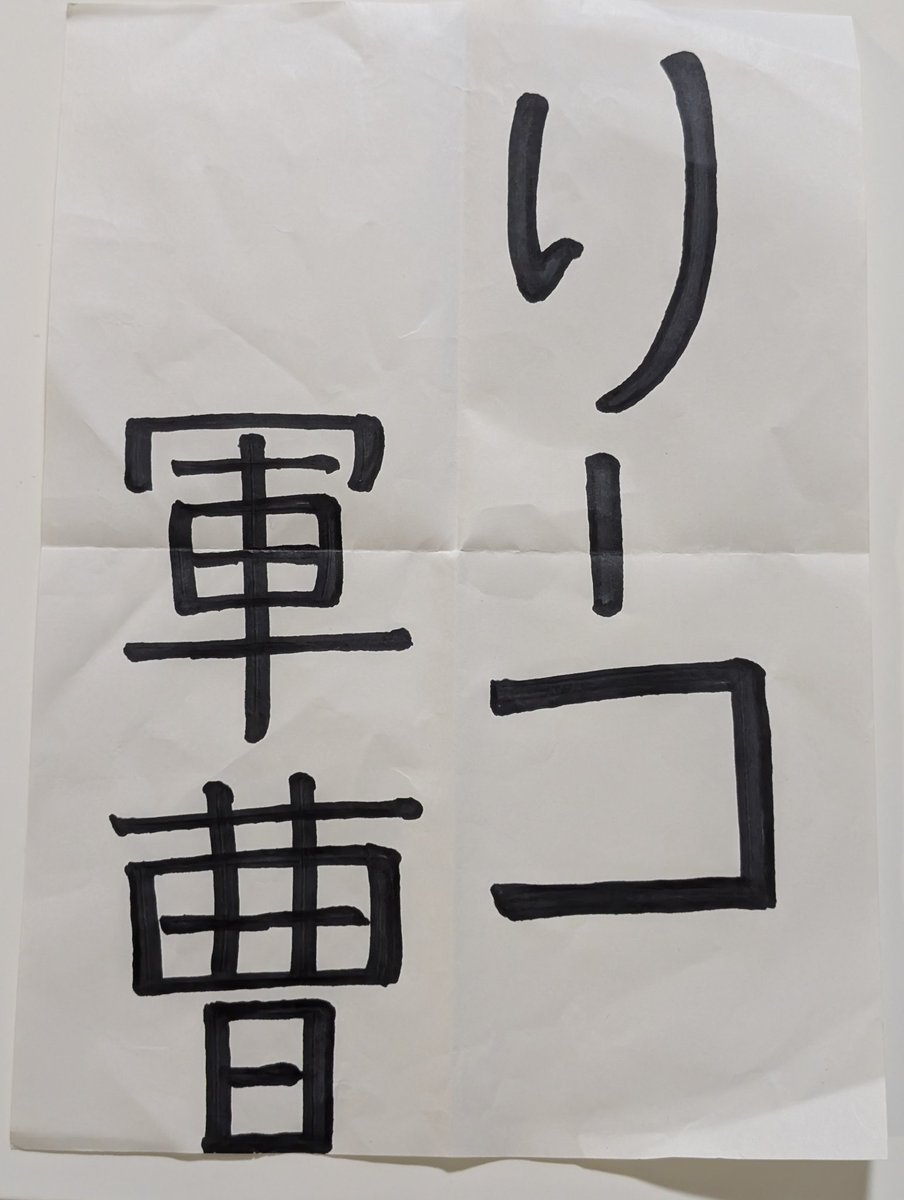 りーコ
軍曹